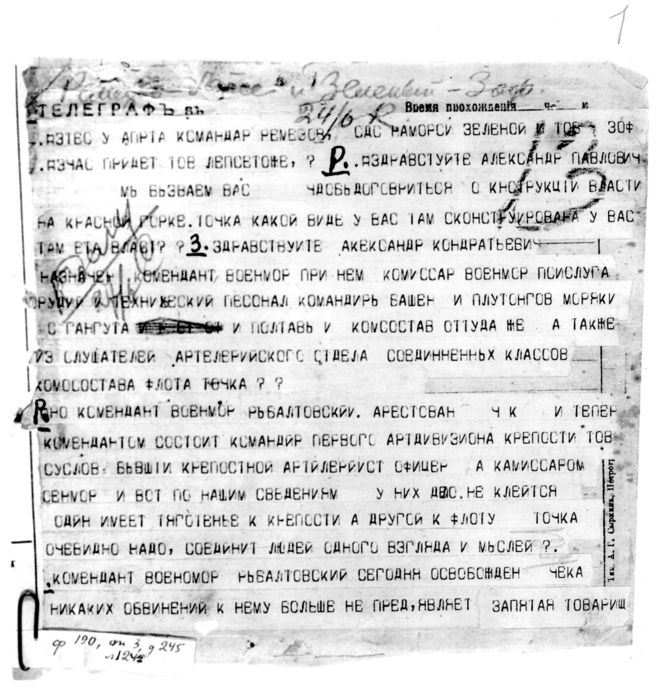 1
и Зеленый - Зоф.
ТЕЛЕГРАФЪ въ
24/6 Р.
Время прохождения ч м
У АПРТА КОМАНДАР РЕМЕЗОВ, СДС НАМОРСИ ЗЕЛЕНОЙ И ТОВ ЗОФ
.АЗЧАС ПРИДЕТ ТОВ ЛЕПСЕТОЖЕ, ? Р. АЗДРАВСТУЙТЕ АЛЕКСАНДР ПАВЛОВИЧ.
МЬ ВЬЗВАЕМ ВАС ЧДОБЬДОГОВРИТЬСЯ О КНСТРУКЦІИ ВЛАСТИ
НА КРАСНОЙ ГОРКЕ.ТОЧКА КАКОЙ ВИДЕ У ВАС ТАМ СКОНСТРУИРОВАНА У ВАС
ТАМ ЕТА ВЛАСТ? ? З. ЗДРАВСТВУИТЕ АКЕКСАНДР КОНДРАТЬЕВИЧ
НАЗНАЧЕН КОМЕНДАНТ ВОЕНМОР ПРИ НЕМ КОМИССАР ВОЕНМОР ПОИСЛУГА
ОРУДИЙ И ТЕХНИЧЕСКИЙ ПЕСОНАЛ КОМАНДИРЬ БАШЕН И ПЛУТОНГОВ МОРЯКИ
С ГАНГУТА И ПОЛТАВЬ И КОМСОСТАВ ОТТУДА ЖЕ А ТАКЖЕ
ИЗ СЛУШАТЕЛЕЙ АРТЕЛЕРИЙСКОГО СТДЕЛА СОЕДИННЕННЬХ КЛАССОВ
КОМОСОСТАВА ФЛОТА ТОЧКА ? ?
Р. НО КОМЕНДАНТ ВОЕНМОР РЬБАЛТОВСКИЙ. АРЕСТОВАН Ч К И ТЕПЕР
КОМЕНДАНТОМ СОСТОИТ КОМАНДИР ПЕРВОГО АРТДИВИЗИОНА КРЕПОСТИ ТОВ
СУСЛОВ. БЬВШТИ КРЕПОСТНОЙ АРТИЛЕРИУСТ ОФИЦЕР А КАМИССАРОМ
СЕНМОР И ВСТ ПО НАШИМ СВЕДЕНИЯМ У НИХ НЕ КЛЕЙТСЯ
ОДИН ИМЕЕТ ТЯГОТЕНЬЕ К КРЕПОСТИ А ДРУГОЙ К ФЛОТУ ТОЧКА
ОЧЕВИДНО НАДО, СОЕДИНИТ ЛЮДЕЙ ОДНОГО ВЗГЛЯДА И МЬСЛЕЙ ?.
.КОМЕНДАНТ ВОЕНОМОР РЬБАЛТОВСКИЙ СЕГОДНЯ ОСВОБОЖДЕН ЧЕКА
НИКАКИХ ОБВИНЕНИЙ К НЕМУ БОЛЬШЕ НЕ ПРЕД,ЯВЛЯЕТ ЗАПЯТАЯ ТОВАРИЩ
13
ф 190, оп 3, д 245